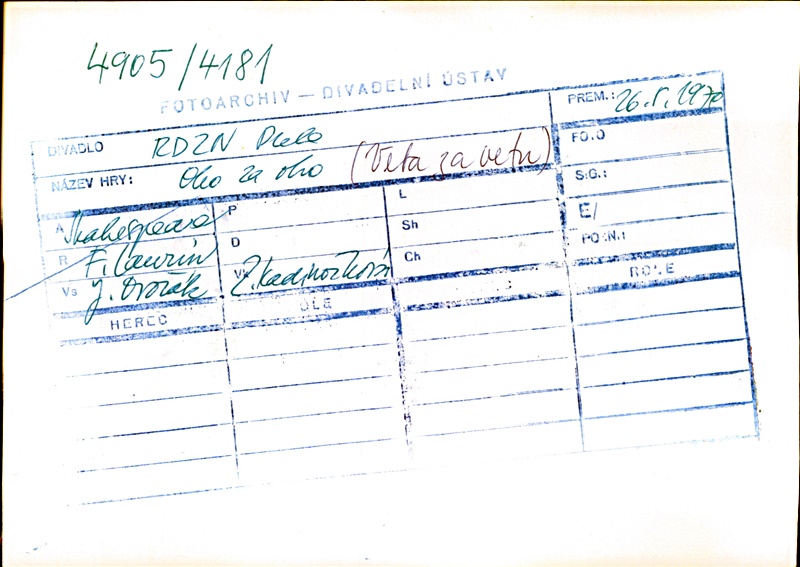 4905/4181
FOTOARCHIV — DIVADELNÍ ÚSTAV
PREM.: 26.5.1970
DIVADLO RDZN
FOTO
NÁZEV HRY: Oko za oko (Veta za vetu)
SIG.:
A Shakespeare P L
E/
R F. Laurin D Sh
POZN.:
Vs J. Dvořák Vk Z. Kadrnožková Ch
HEREC ROLE ROLE